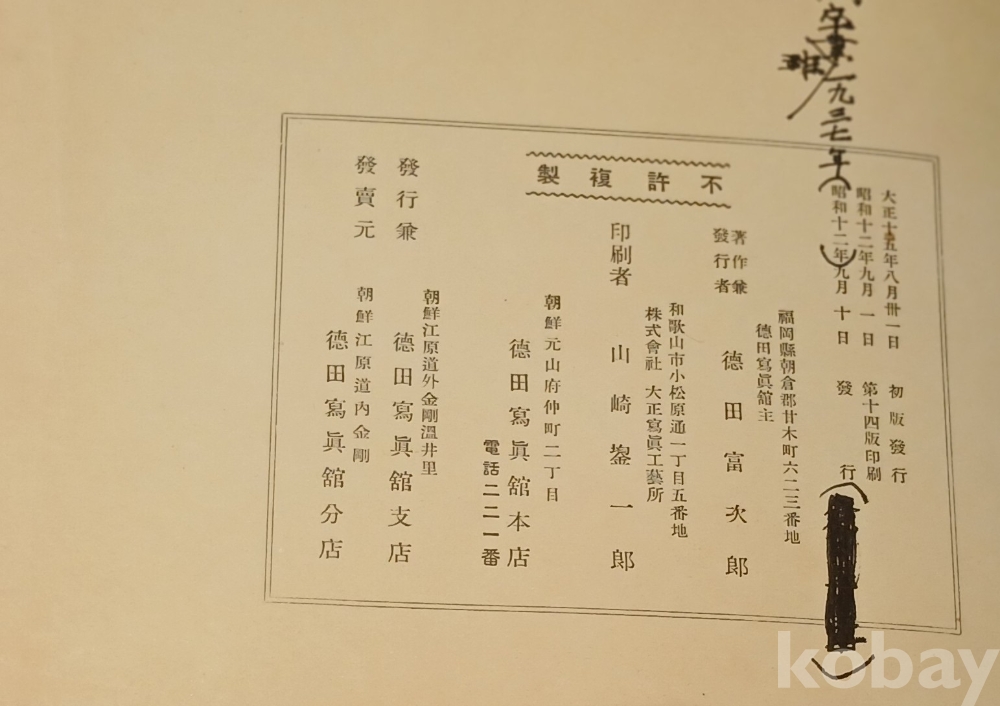 一九三七年
大正十五年八月卅一日 初版發行
昭和十二年九月一日 第十四版印刷
昭和十二年九月十日 發行
不許複製
福岡縣朝倉郡甘木町六二三番地
德田寫眞舘主
著作兼
發行者 德田富次郎
和歌山市小松原通一丁目五番地
株式會社 大正寫眞工藝所
印刷者 山崎鋆一郎
朝鮮元山府仲町二丁目
德田寫眞舘本店
電話二二一番
朝鮮江原道外金剛溫井里
發行兼 德田寫眞舘支店
朝鮮江原道內金剛
發賣元 德田寫眞舘分店
kobay